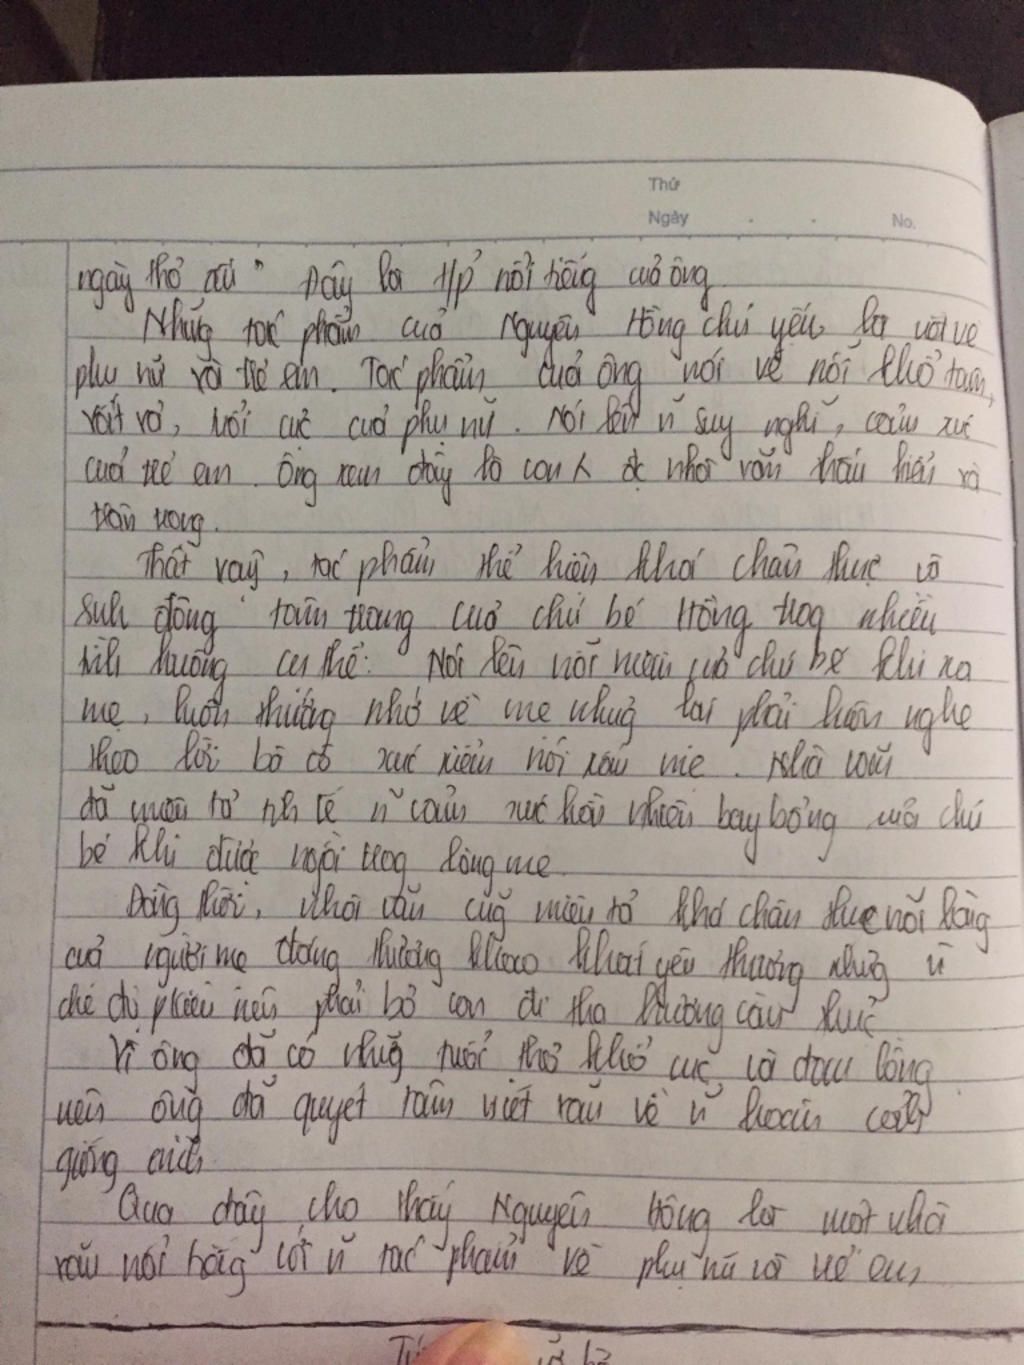 Thứ
Ngày . . No.
ngày thơ ấu" Đây là t/p nổi tiếng của ông
Những tác phẩm của Nguyên Hồng chủ yếu là viết về
phụ nữ và trẻ em. Tác phẩm của ông nói về nỗi khổ tâm,
vất vả, nỗi cực của phụ nữ. Nói lên n~ suy nghĩ, cảm xúc
của trẻ em. Ông xem đây là con đc nhà văn thấu hiểu và
trân trọng.
Thật vậy, tác phẩm thể hiện khá chân thực và
sinh động tâm trạng của chú bé Hồng trog nhiều
tình huống cụ thể: Nói lên nỗi niềm của chú bé khi xa
mẹ, luôn thương nhớ về mẹ nhưg lại phải luôn nghe
theo lời bà cô xúc xiểm nói xấu mẹ. Nhà văn
đã miêu tả tih tế n~ cảm xúc hồn nhiên bay bổng của chú
bé khi được ngồi trog lòng mẹ
Đồng thời, nhà văn cũg miêu tả khá chân thực nỗi lòng
của người mẹ đáng thương khao khát yêu thương nhưg n~
chế định kiến nên phải bỏ con đi tha hương cầu thực
Vì ông đã có nhữg tuổi thơ khổ cực và đau lòng
nên ông đã quyết tâm viết văn về n~ hoàn cảnh
giống mình
Qua đây cho thấy Nguyên Hồng là một nhà
văn nổi tiếng với n~ tác phẩm về phụ nữ và trẻ em